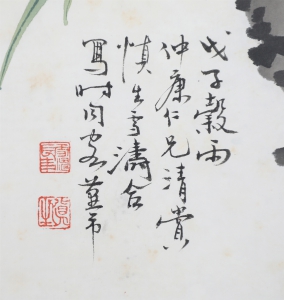 戊子穀雨
仲康仁兄清賞
慎生雪濤合
寫時同客薊市
慎生